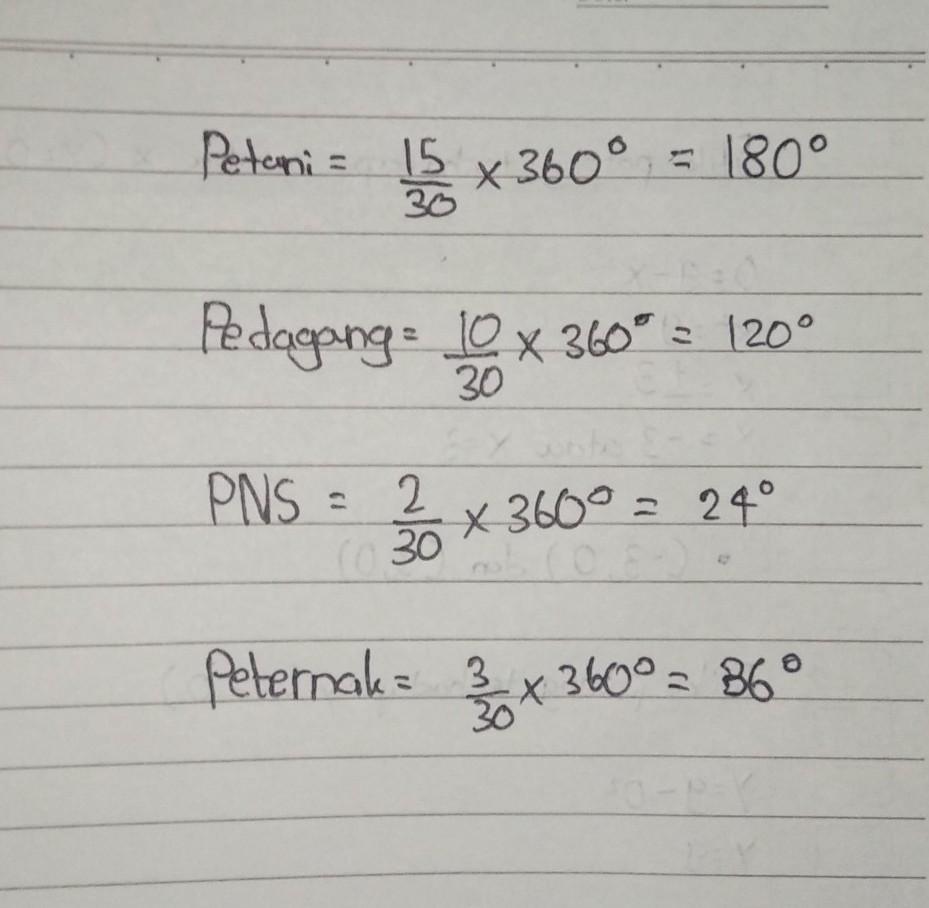 Petani = 15/30 x 360° = 180°
Pedagang = 10/30 x 360° = 120°
PNS = 2/30 x 360° = 24°
Peternak = 3/30 x 360° = 36°